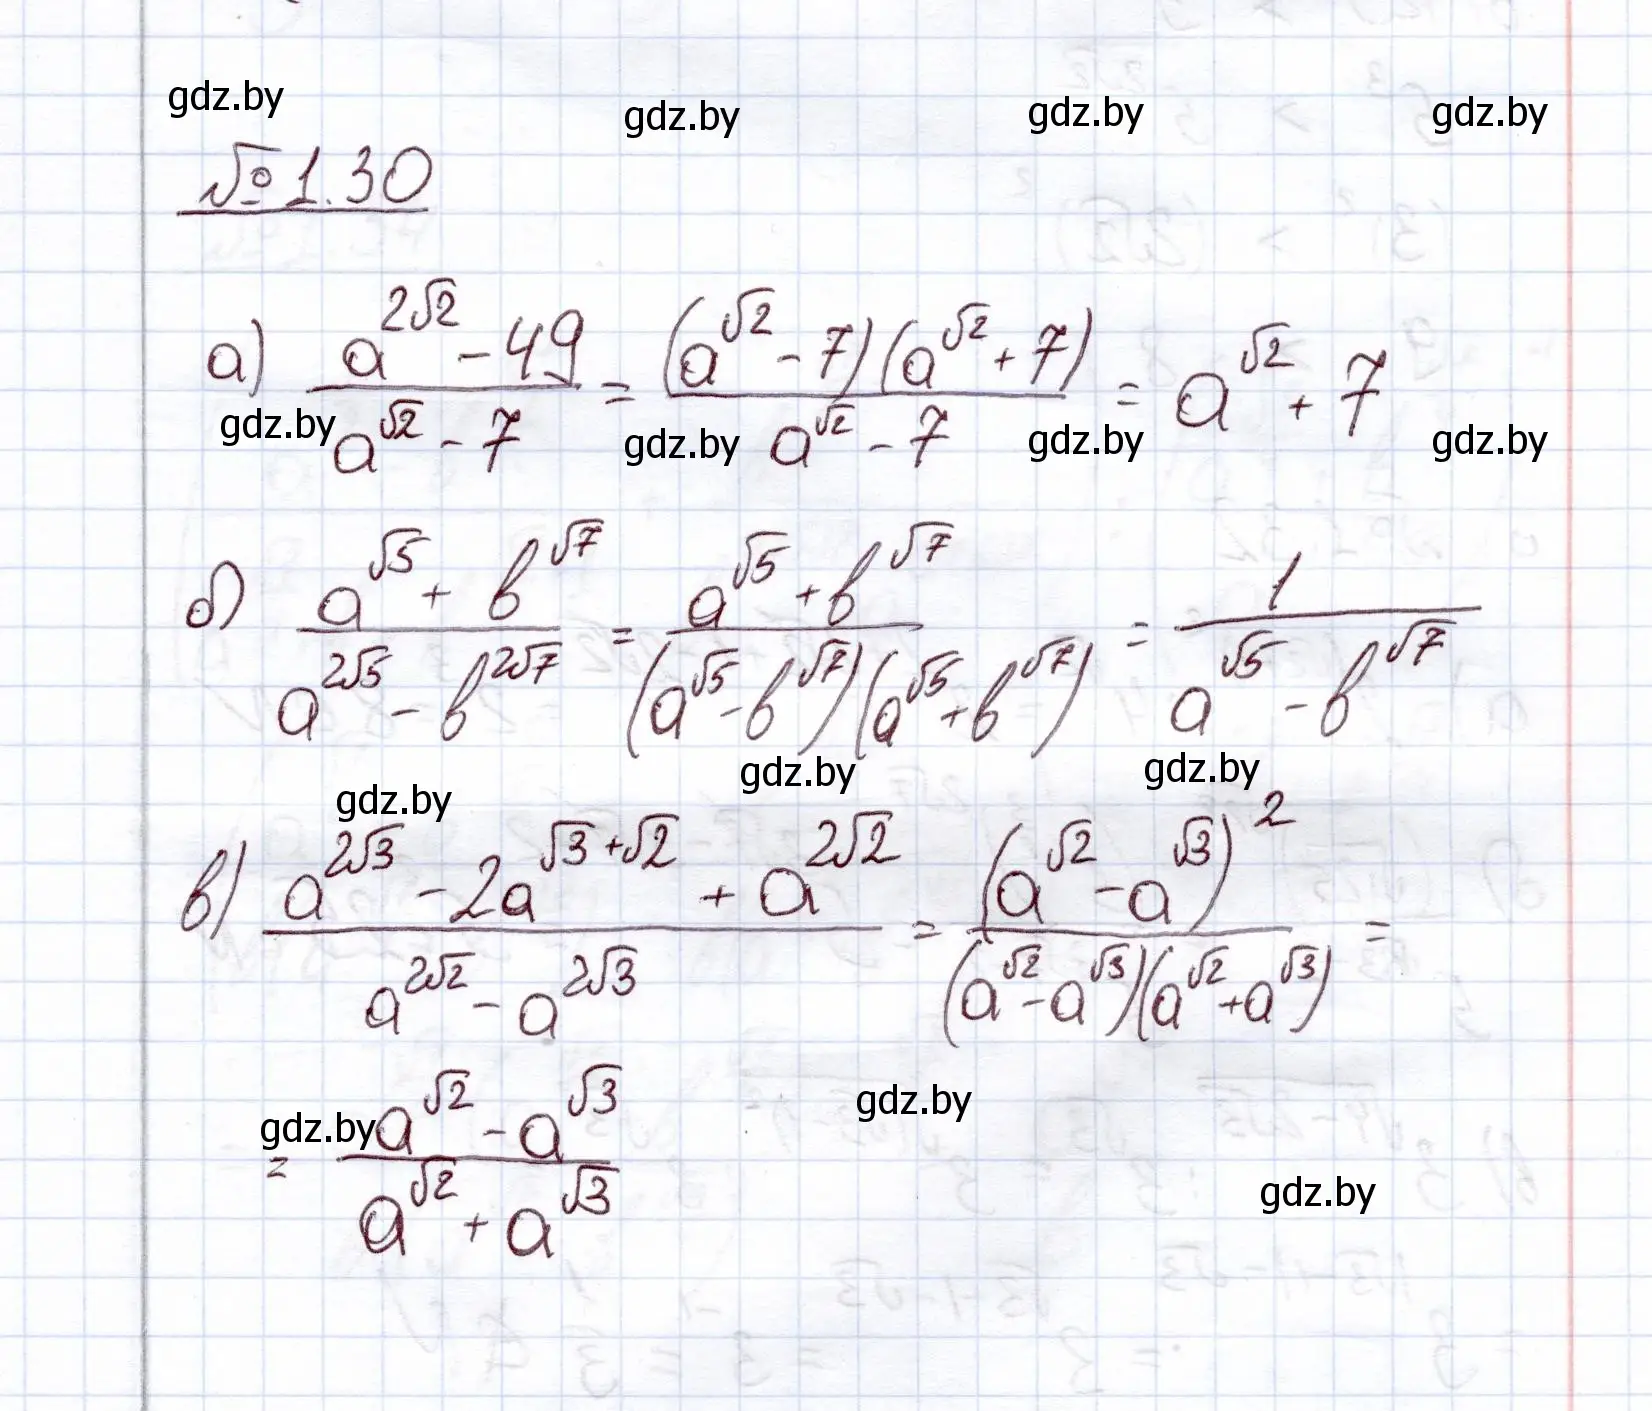 gdz.by gdz.by gdz.by gdz.by
№1.30
а) (a^(2√2) - 49)/(a^(√2) - 7) = ((a^(√2) - 7)(a^(√2) + 7))/(a^(√2) - 7) = a^(√2) + 7
gdz.by gdz.by gdz.by gdz.by
б) (a^(√5) + b^(√7))/(a^(2√5) - b^(2√7)) = (a^(√5) + b^(√7))/((a^(√5) - b^(√7))(a^(√5) + b^(√7))) = 1/(a^(√5) - b^(√7))
gdz.by gdz.by gdz.by
в) (a^(2√3) - 2a^(√3+√2) + a^(2√2))/(a^(2√2) - a^(2√3)) = (a^(√2) - a^(√3))^2/((a^(√2) - a^(√3))(a^(√2) + a^(√3))) =
gdz.by gdz.by
= (a^(√2) - a^(√3))/(a^(√2) + a^(√3))
gdz.by